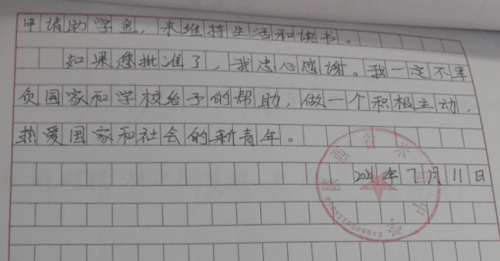 申请助学金，来维持生活和读书。
如果您批准了，我忠心感谢。我一定不辜
负国家和学校给予的帮助，做一个积极主动，
热爱国家和社会的新青年。
年7月11日